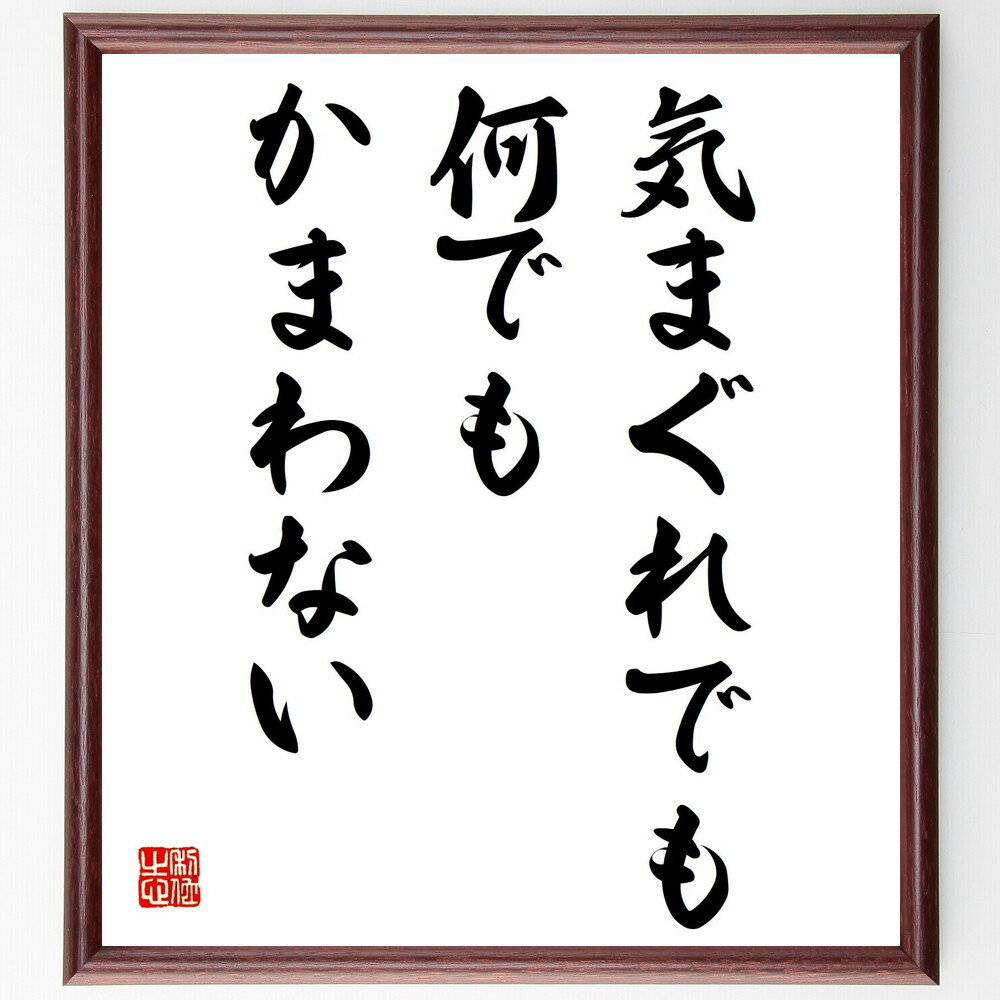 気まぐれでも
何でも
かまわない